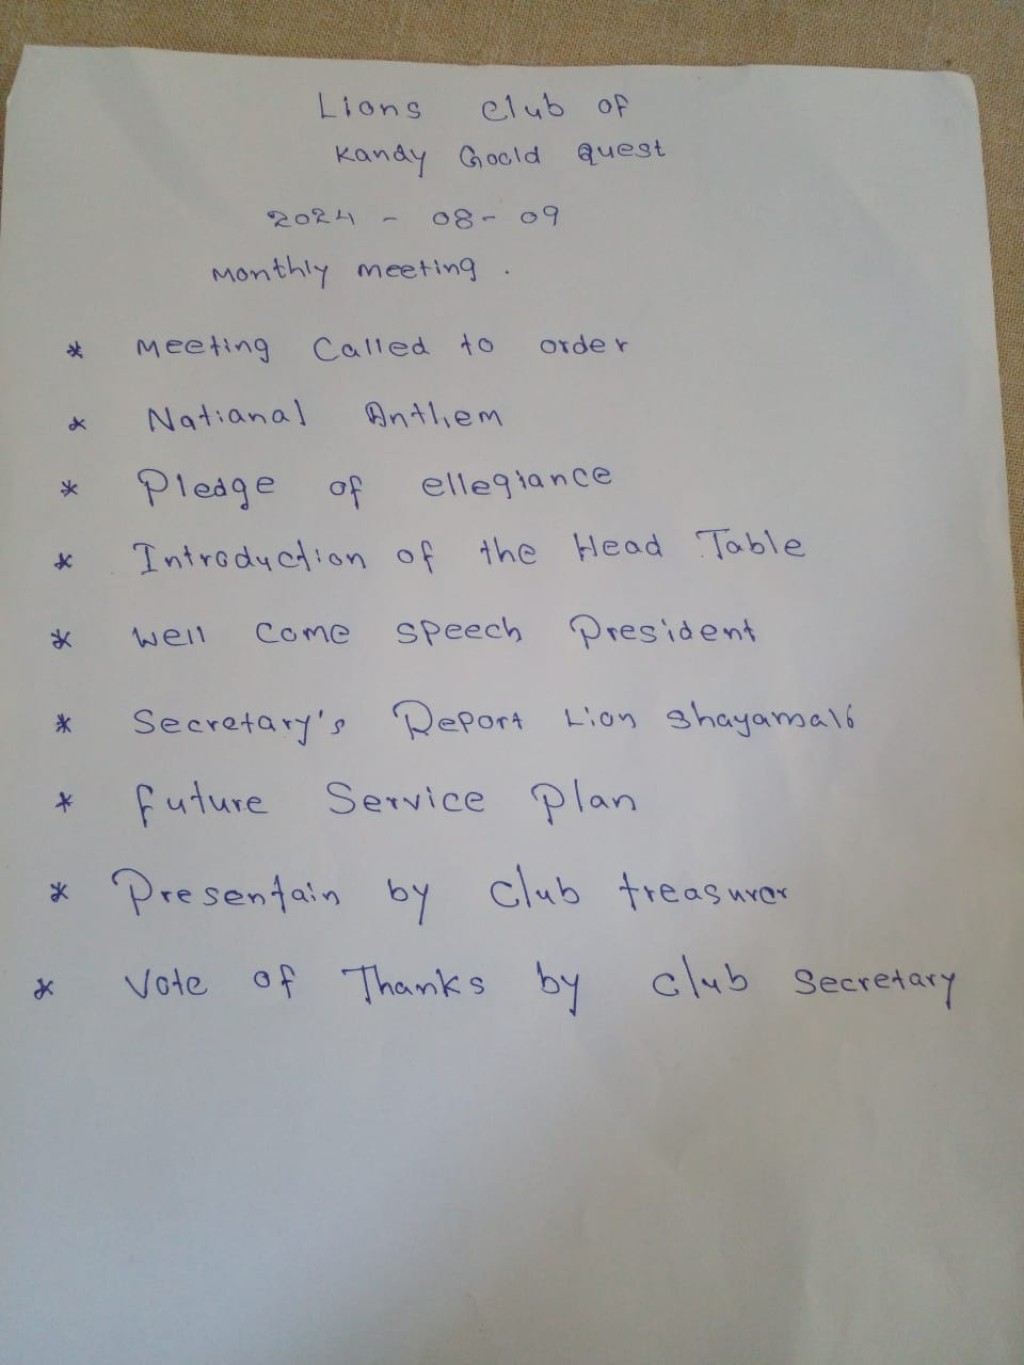 Lions Club of
Kandy Goold Quest
2024 - 08 - 09
Monthly meeting .
* Meeting Called to order
* Natianal Anthem
* Pledge of ellegiance
* Introduction of the Head Table
* Well Come Speech President
* Secretary's Report Lion
* Future Service Plan
* Presentain by Club treasurer
* Vote of Thanks by Club Secretary